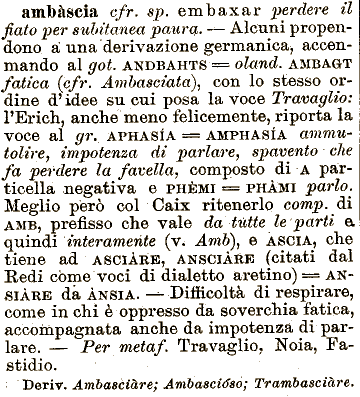 ambàscia cfr. sp. embaxar perdere il
fiato per subitanea paura. — Alcuni propen-
dono a una derivazione germanica, accen-
mando al got. ANDBAHTS = oland. AMBAGT
fatica (cfr. Ambasciata), con lo stesso or-
dine d'idee su cui posa la voce Travaglio:
l'Erich, anche meno felicemente, riporta la
voce al gr. APHASÍA = AMPHASÍA ammu-
tolire, impotenza di parlare, spavento che
fa perdere la favella, composto di A par-
ticella negativa e PHÈMI = PHÀMI parlo.
Meglio però col Caix ritenerlo comp. di
AMB, prefisso che vale da tutte le parti e
quindi interamente (v. Amb), e ASCIA, che
tiene ad ASCIÀRE, ANSCIÀRE (citati dal
Redi come voci di dialetto aretino) = AN-
SIÀRE da ÀNSIA. — Difficoltà di respirare,
come in chi è oppresso da soverchia fatica,
accompagnata anche da impotenza di par-
lare. — Per metaf. Travaglio, Noia, Fa-
stidio.
Deriv. Ambasciàre; Ambascióso; Trambasciàre.